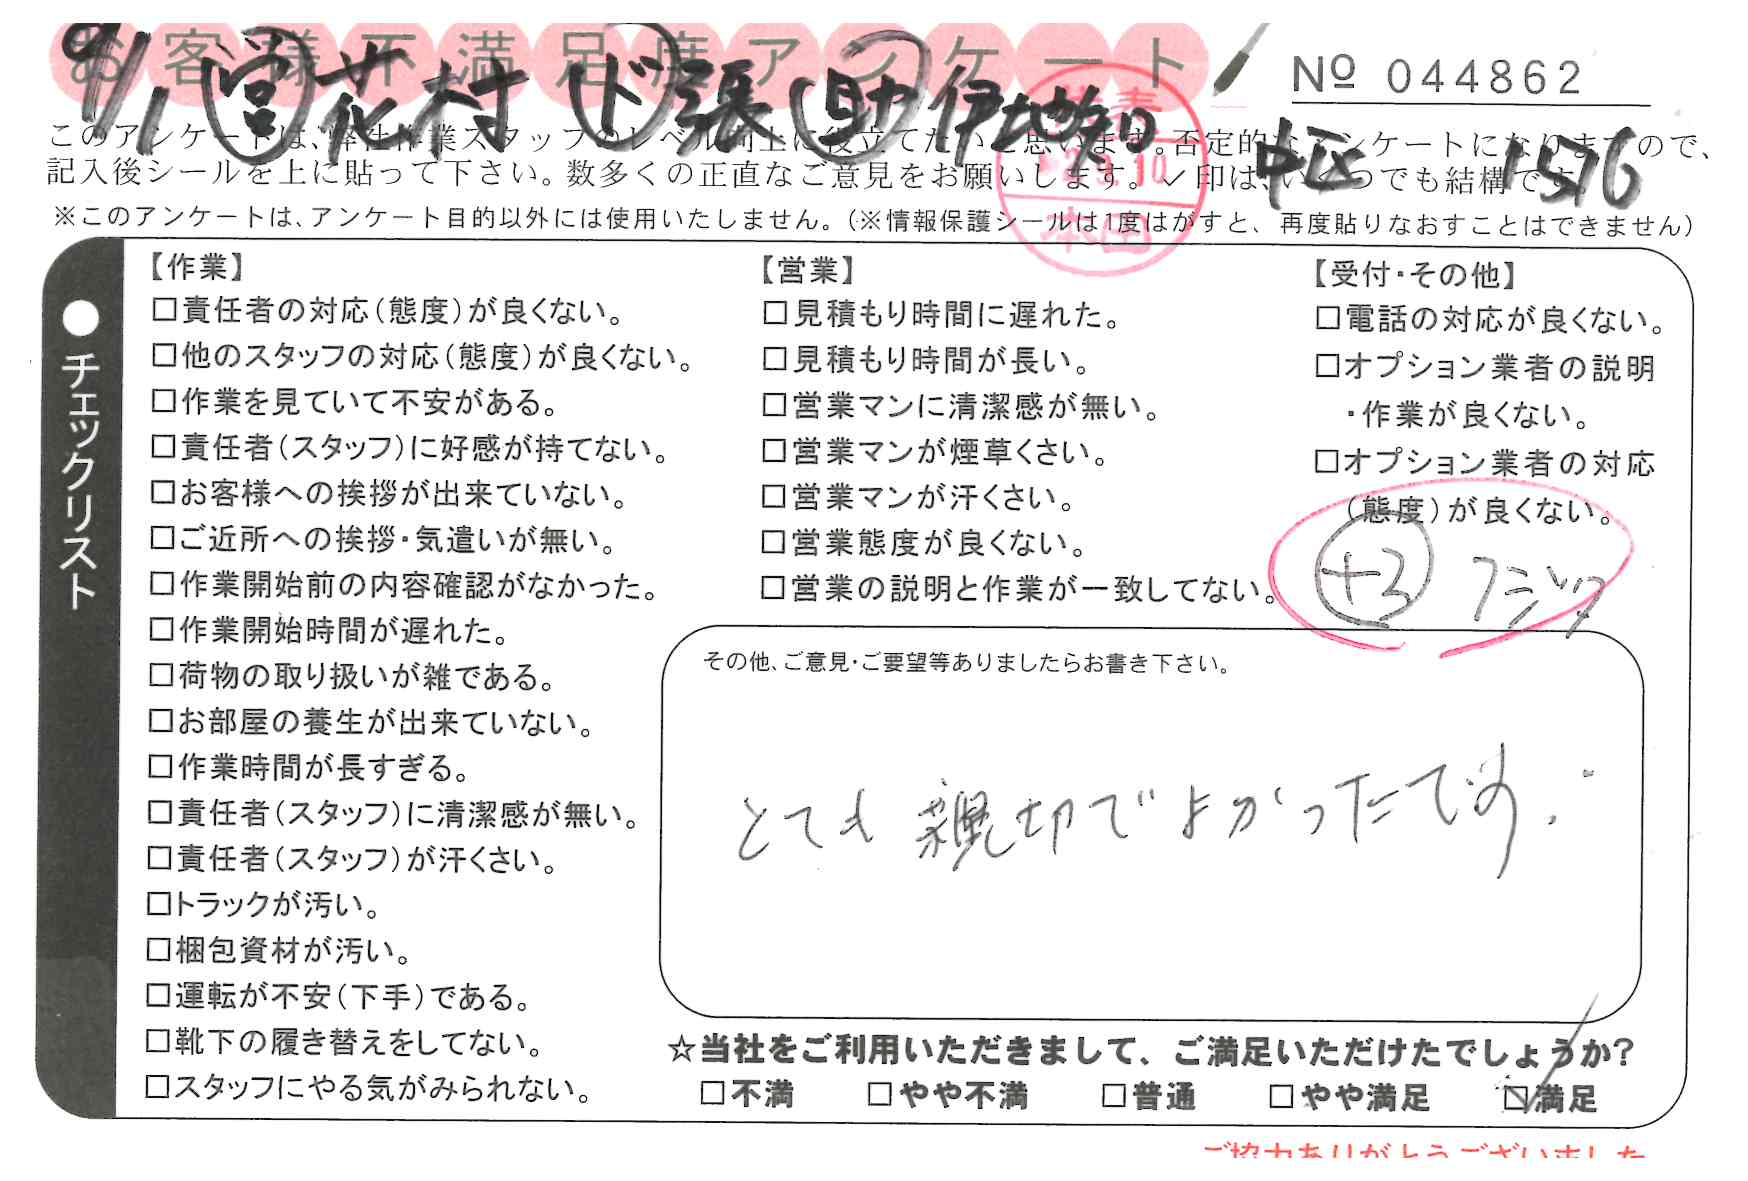 お客様不満足度アンケート
№ 044862
9/1 営 花村 ド 張 助 伊地知
中区 1576
このアンケートは、弊社作業スタッフのレベル向上に役立てたいと思います。否定的なアンケートになりますので、
記入後シールを上に貼って下さい。数多くの正直なご意見をお願いします。✓印は、いくつでも結構です。
※このアンケートは、アンケート目的以外には使用いたしません。（※情報保護シールは1度はがすと、再度貼りなおすことはできません）
●チェックリスト
【作業】
□責任者の対応（態度）が良くない。
□他のスタッフの対応（態度）が良くない。
□作業を見ていて不安がある。
□責任者（スタッフ）に好感が持てない。
□お客様への挨拶が出来ていない。
□ご近所への挨拶・気遣いが無い。
□作業開始前の内容確認がなかった。
□作業開始時間が遅れた。
□荷物の取り扱いが雑である。
□お部屋の養生が出来ていない。
□作業時間が長すぎる。
□責任者（スタッフ）に清潔感が無い。
□責任者（スタッフ）が汗くさい。
□トラックが汚い。
□梱包資材が汚い。
□運転が不安（下手）である。
□靴下の履き替えをしてない。
□スタッフにやる気がみられない。
【営業】
□見積もり時間に遅れた。
□見積もり時間が長い。
□営業マンに清潔感が無い。
□営業マンが煙草くさい。
□営業マンが汗くさい。
□営業態度が良くない。
□営業の説明と作業が一致してない。
【受付・その他】
□電話の対応が良くない。
□オプション業者の説明
・作業が良くない。
□オプション業者の対応
（態度）が良くない。
+3
その他、ご意見・ご要望等ありましたらお書き下さい。
とても親切でよかったです。
☆当社をご利用いただきまして、ご満足いただけたでしょうか?
□不満 □やや不満 □普通 □やや満足 ☑満足
ご協力ありがとうございました